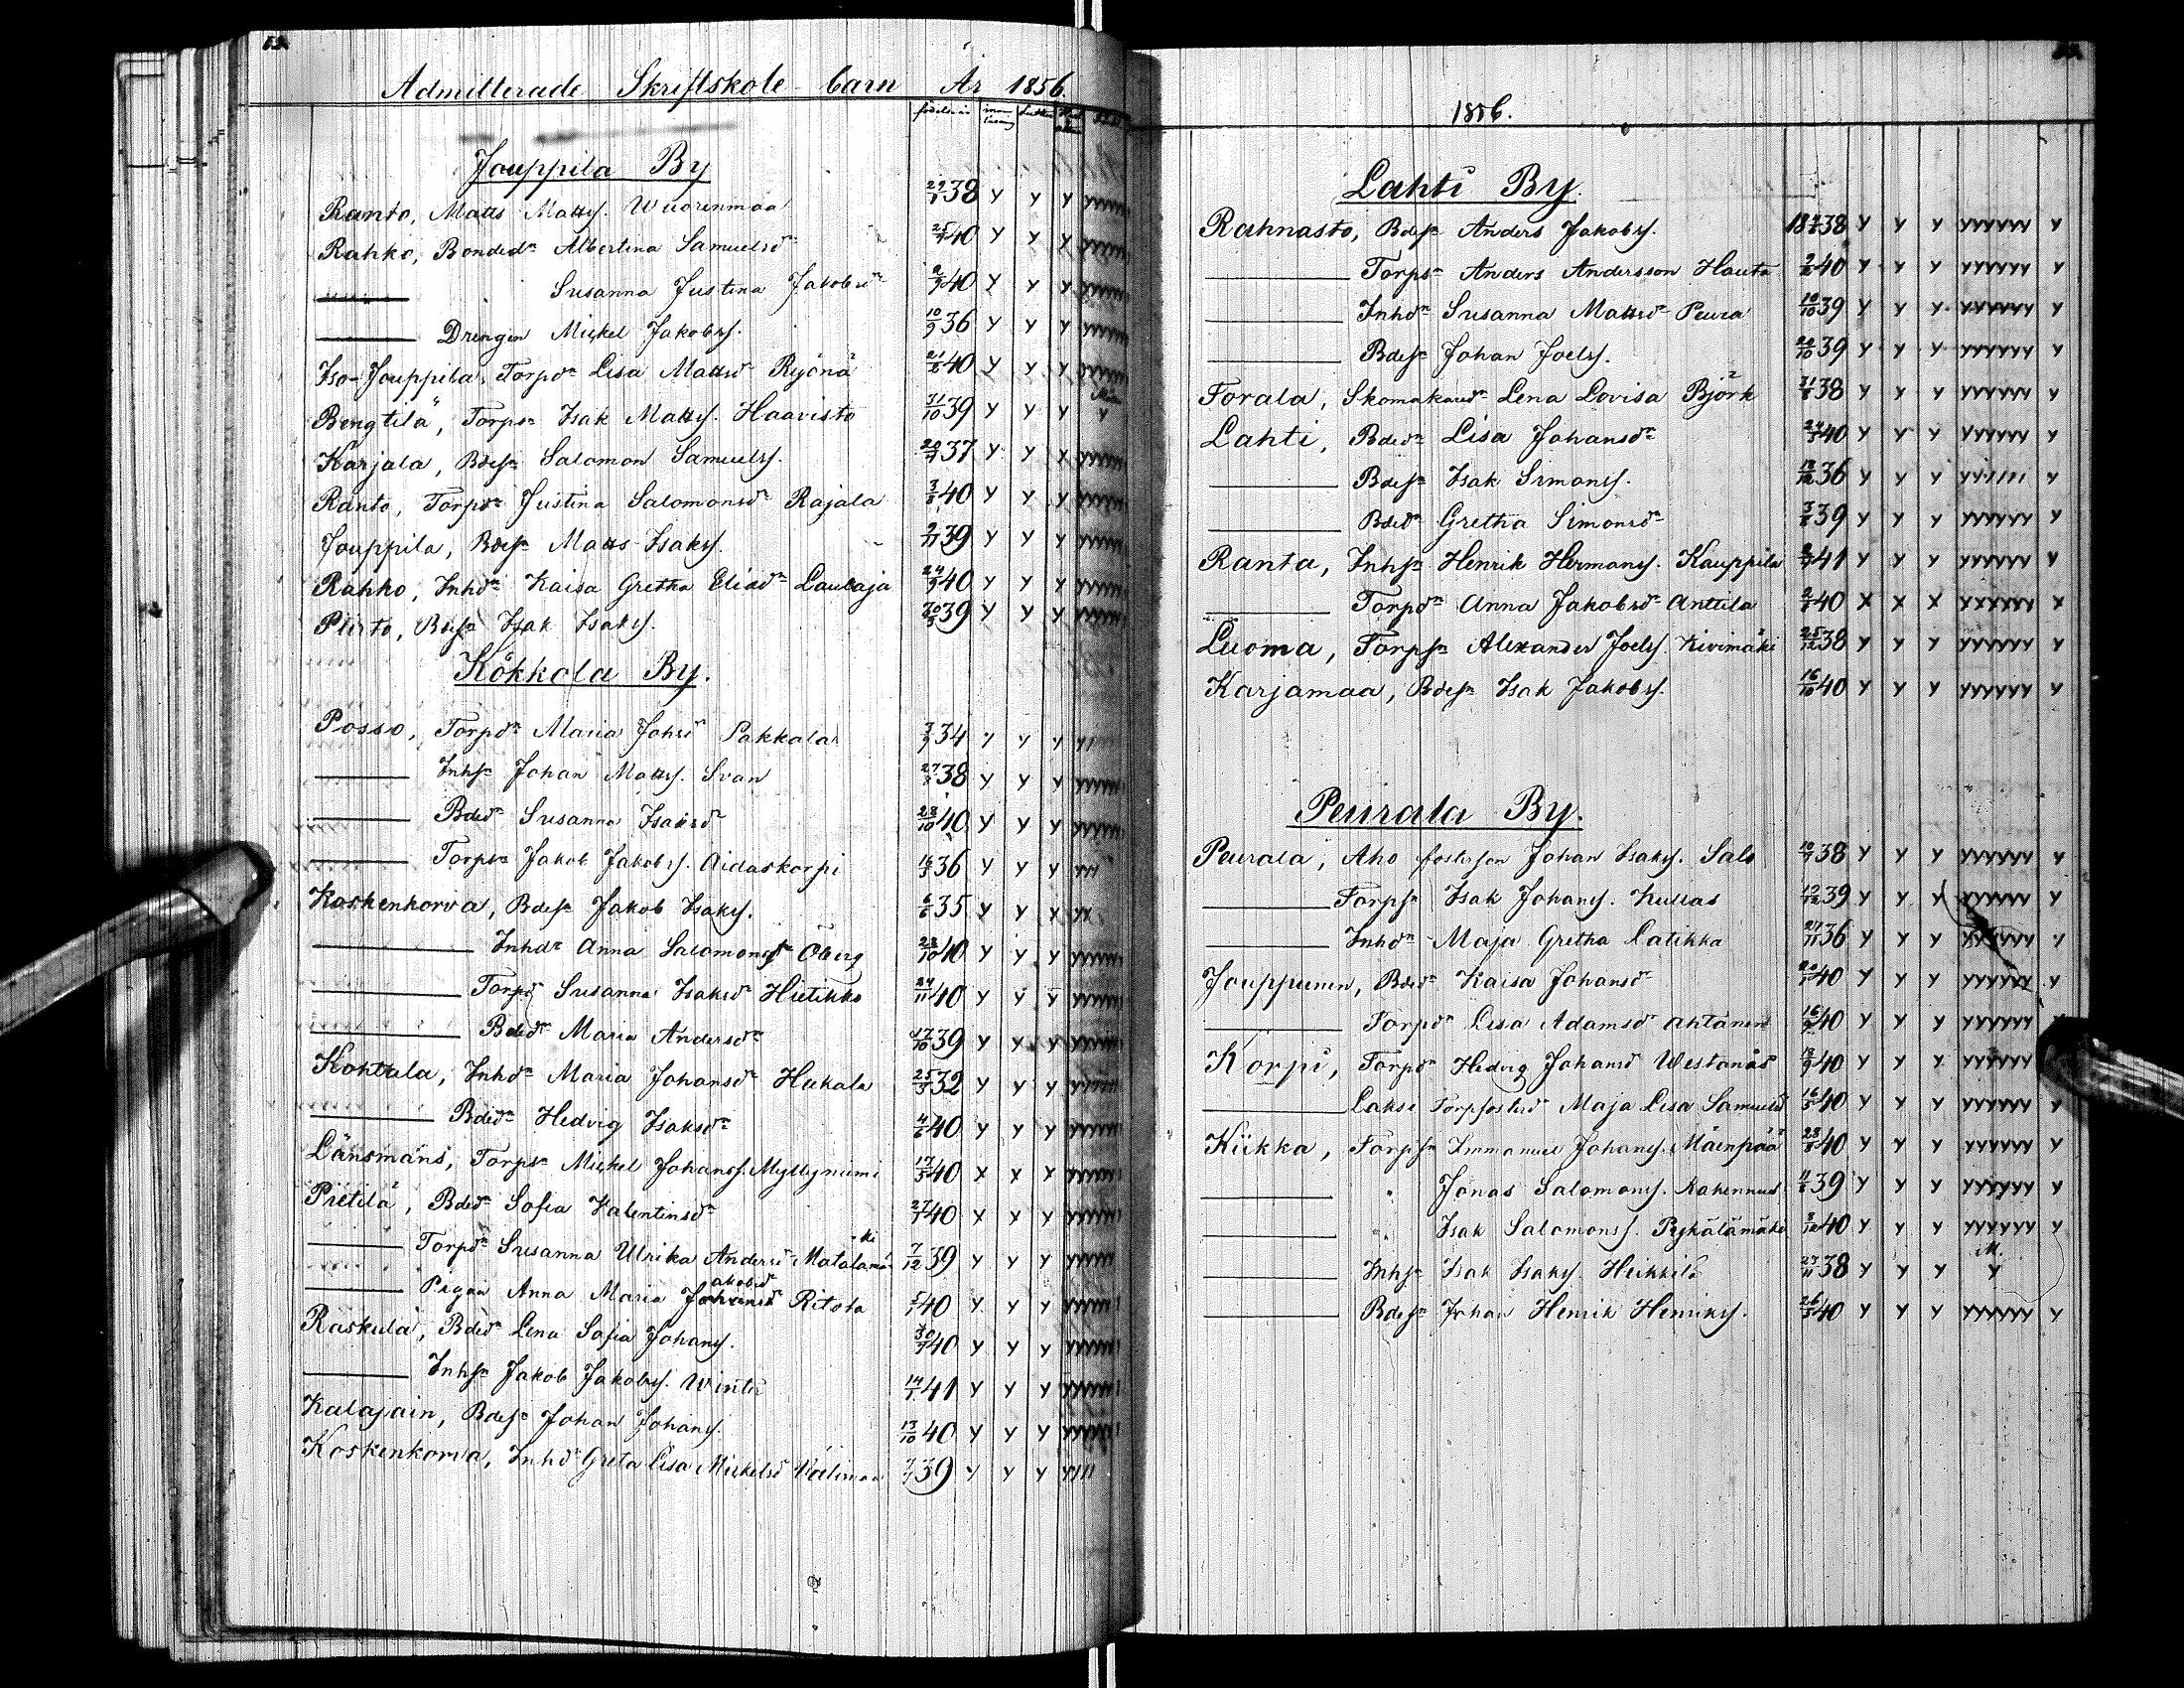 Admitterade Skriftskole-barn År 1856.
födelseår
Jouppila By
Ranto, Matts Matts. Wuorenmaa 29/1 38 Y Y Y YYYYYY
Rahko, Bonded. Albertina Samuelsdr 40 Y Y Y YYYYYY
Susanna Justina Jakobsdr 2/9 40 Y Y Y YYYYYY
Drengen Mickel Jakobss. 10/9 36 Y Y Y YYYYYY
Iso-Jouppila, Torpdr Lisa Mattsdr Ryönä 21/6 40 Y Y Y YYYYYY
Bengtilä, Torpsn Isak Matts. Haavisto 31/10 39 Y Y Y Y
Karjala, Bdesn Salomon Samuelss. 37 Y Y Y YYYYYY
Ranto, Torpdr Justina Salomonsdr Rajala 40 Y Y Y YYYYYY
Jouppila, Bdesn Matts Isakss. 2/11 39 Y Y Y YYYYYY
Rahko, Inhdr Kaisa Gretha Eliasdr Laulaja 24/9 40 Y Y Y YYYYYY
Piirto, Bdesn Isak Isakss. 39 Y Y Y YYYYYY
Kokkola By.
Posso, Torpdr Maria Johsdr Pakkala 34 Y Y Y
Inhsn Johan Matts. Svan 38 Y Y Y YYYYYY
Bdedr Susanna Isaksdr 28/10 40 Y Y Y YYYYYY
Torpsn Jakob Jakobss. Aidaskorpi 36 Y Y Y
Koskenkorva, Bdesn Jakob Isakss. 6/6 35 Y Y Y
Inhdr Anna Salomonsdr Öberg 28/10 40 Y Y Y YYYYYY
Torpd Susanna Isaksdr Hietikko 24/11 40 Y Y Y YYYYYY
Bdedr Maria Andersdr 17/10 39 Y Y Y YYYYYY
Kohtala, Inhdr Maria Johansdr Hukala 25/3 32 Y Y Y YYYYYY
Bdedr Hedvig Isaksdr 4/6 40 Y Y Y YYYYYY
Länsmans, Torpsn Mickel Johanss. Myllyniemi 17/5 40 X X X YYYYYY
Pietilä, Bdedr Sofia Valentinsdr 27/1 40 X X Y YYYYYY
Torpdr Susanna Ulrika Andersdr Matalamäki 7/12 39 Y Y Y YYYYYY
Pigan Anna Maria Jakobsdr Ritola 40 Y Y Y YYYYYY
Raskula, Bdedr Lena Sofia Johans. 40 Y Y Y YYYYYY
Inhsn Jakob Jakobss. Winter 14/1 41 Y Y Y YYYYYY
Kalajain, Bdesn Johan Johans. 13/10 40 Y Y Y YYYYYY
Koskenkorva, Inhdr Greta Lisa Mickelsdr 39 Y Y Y
1856.
Lahti By.
Rahnasto, Bdesn Anders Jakobss. 38 Y Y Y YYYYYY Y
Torpsn Anders Andersson Hauta 40 Y Y Y YYYYYY Y
Inhdr Susanna Mattsdr Peura 10/10 39 Y Y Y YYYYYY Y
Bdesn Johan Joelss. 39 Y Y Y YYYYYY Y
Forala, Skomakaredr Lena Lovisa Björk 38 Y Y Y YYYYYY Y
Lahti, Bdedr Lisa Johansdr 40 Y Y Y YYYYYY Y
Bdesn Isak Simons. 36 Y Y Y Y
Bdedr Gretha Simonsdr 39 Y Y Y YYYYYY Y
Ranta, Inhsn Henrik Hermans. Kauppila 41 Y Y Y YYYYYY Y
Torpdr Anna Jakobsdr Anttila 40 X X X XXXXXX X
Luoma, Torpsn Alexander Joelss. Kivimäki 25/12 38 Y Y Y YYYYYY Y
Karjamaa, Bdesn Isak Jakobss. 16/10 40 Y Y Y YYYYYY Y
Peurala By.
Peurala, Aho fosterson Johan Isakss. Salo 38 Y Y Y YYYYYY Y
Torpsn Isak Johans. Kullas 12/12 39 Y Y Y YYYYYY Y
Inhdr Maja Gretha Latikka 36 Y Y Y YYYYYY Y
Jouppunen, Bdedr Kaisa Johansdr 40 Y Y Y YYYYYY Y
Torpdr Lisa Adamsdr Ahtanen 40 Y Y Y YYYYYY
Korpi, Torpdr Hedvig Johansdr Westanås 40 Y Y Y YYYYYY
Lakso Torpfosterdr Maja Lisa Samuelsdr 16/5 40 Y Y Y YYYYYY Y
Kiikka, Torpsn Immanuel Johans. Mäenpää 40 Y Y Y YYYYYY Y
" Jonas Salomons. Rakennus 39 Y Y Y YYYYYY Y
" Isak Salomons. Pykälämäki 40 Y Y Y YYYYYY Y
Inhsn Isak Isakss. Heikkilä 38 Y Y Y Y Y
Bdesn Johan Henrik Henrikss. 26/3 40 Y Y Y YYYYYY Y